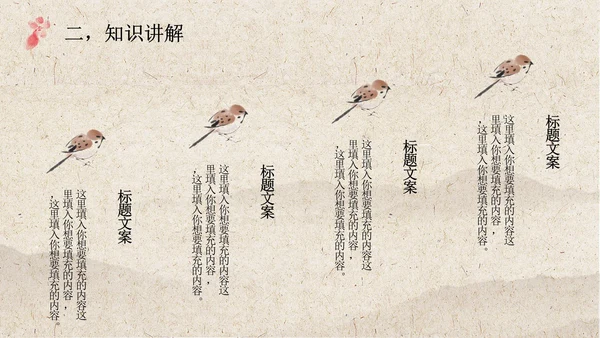 二，知识讲解
标题文案
这里填入你想要填充的内容这
里填入你想要填充的内容，
，这里填入你想要填充的内容。
标题文案
这里填入你想要填充的内容这
里填入你想要填充的内容，
，这里填入你想要填充的内容。
标题文案
这里填入你想要填充的内容这
里填入你想要填充的内容，
，这里填入你想要填充的内容。
标题文案
这里填入你想要填充的内容这
里填入你想要填充的内容，
，这里填入你想要填充的内容。